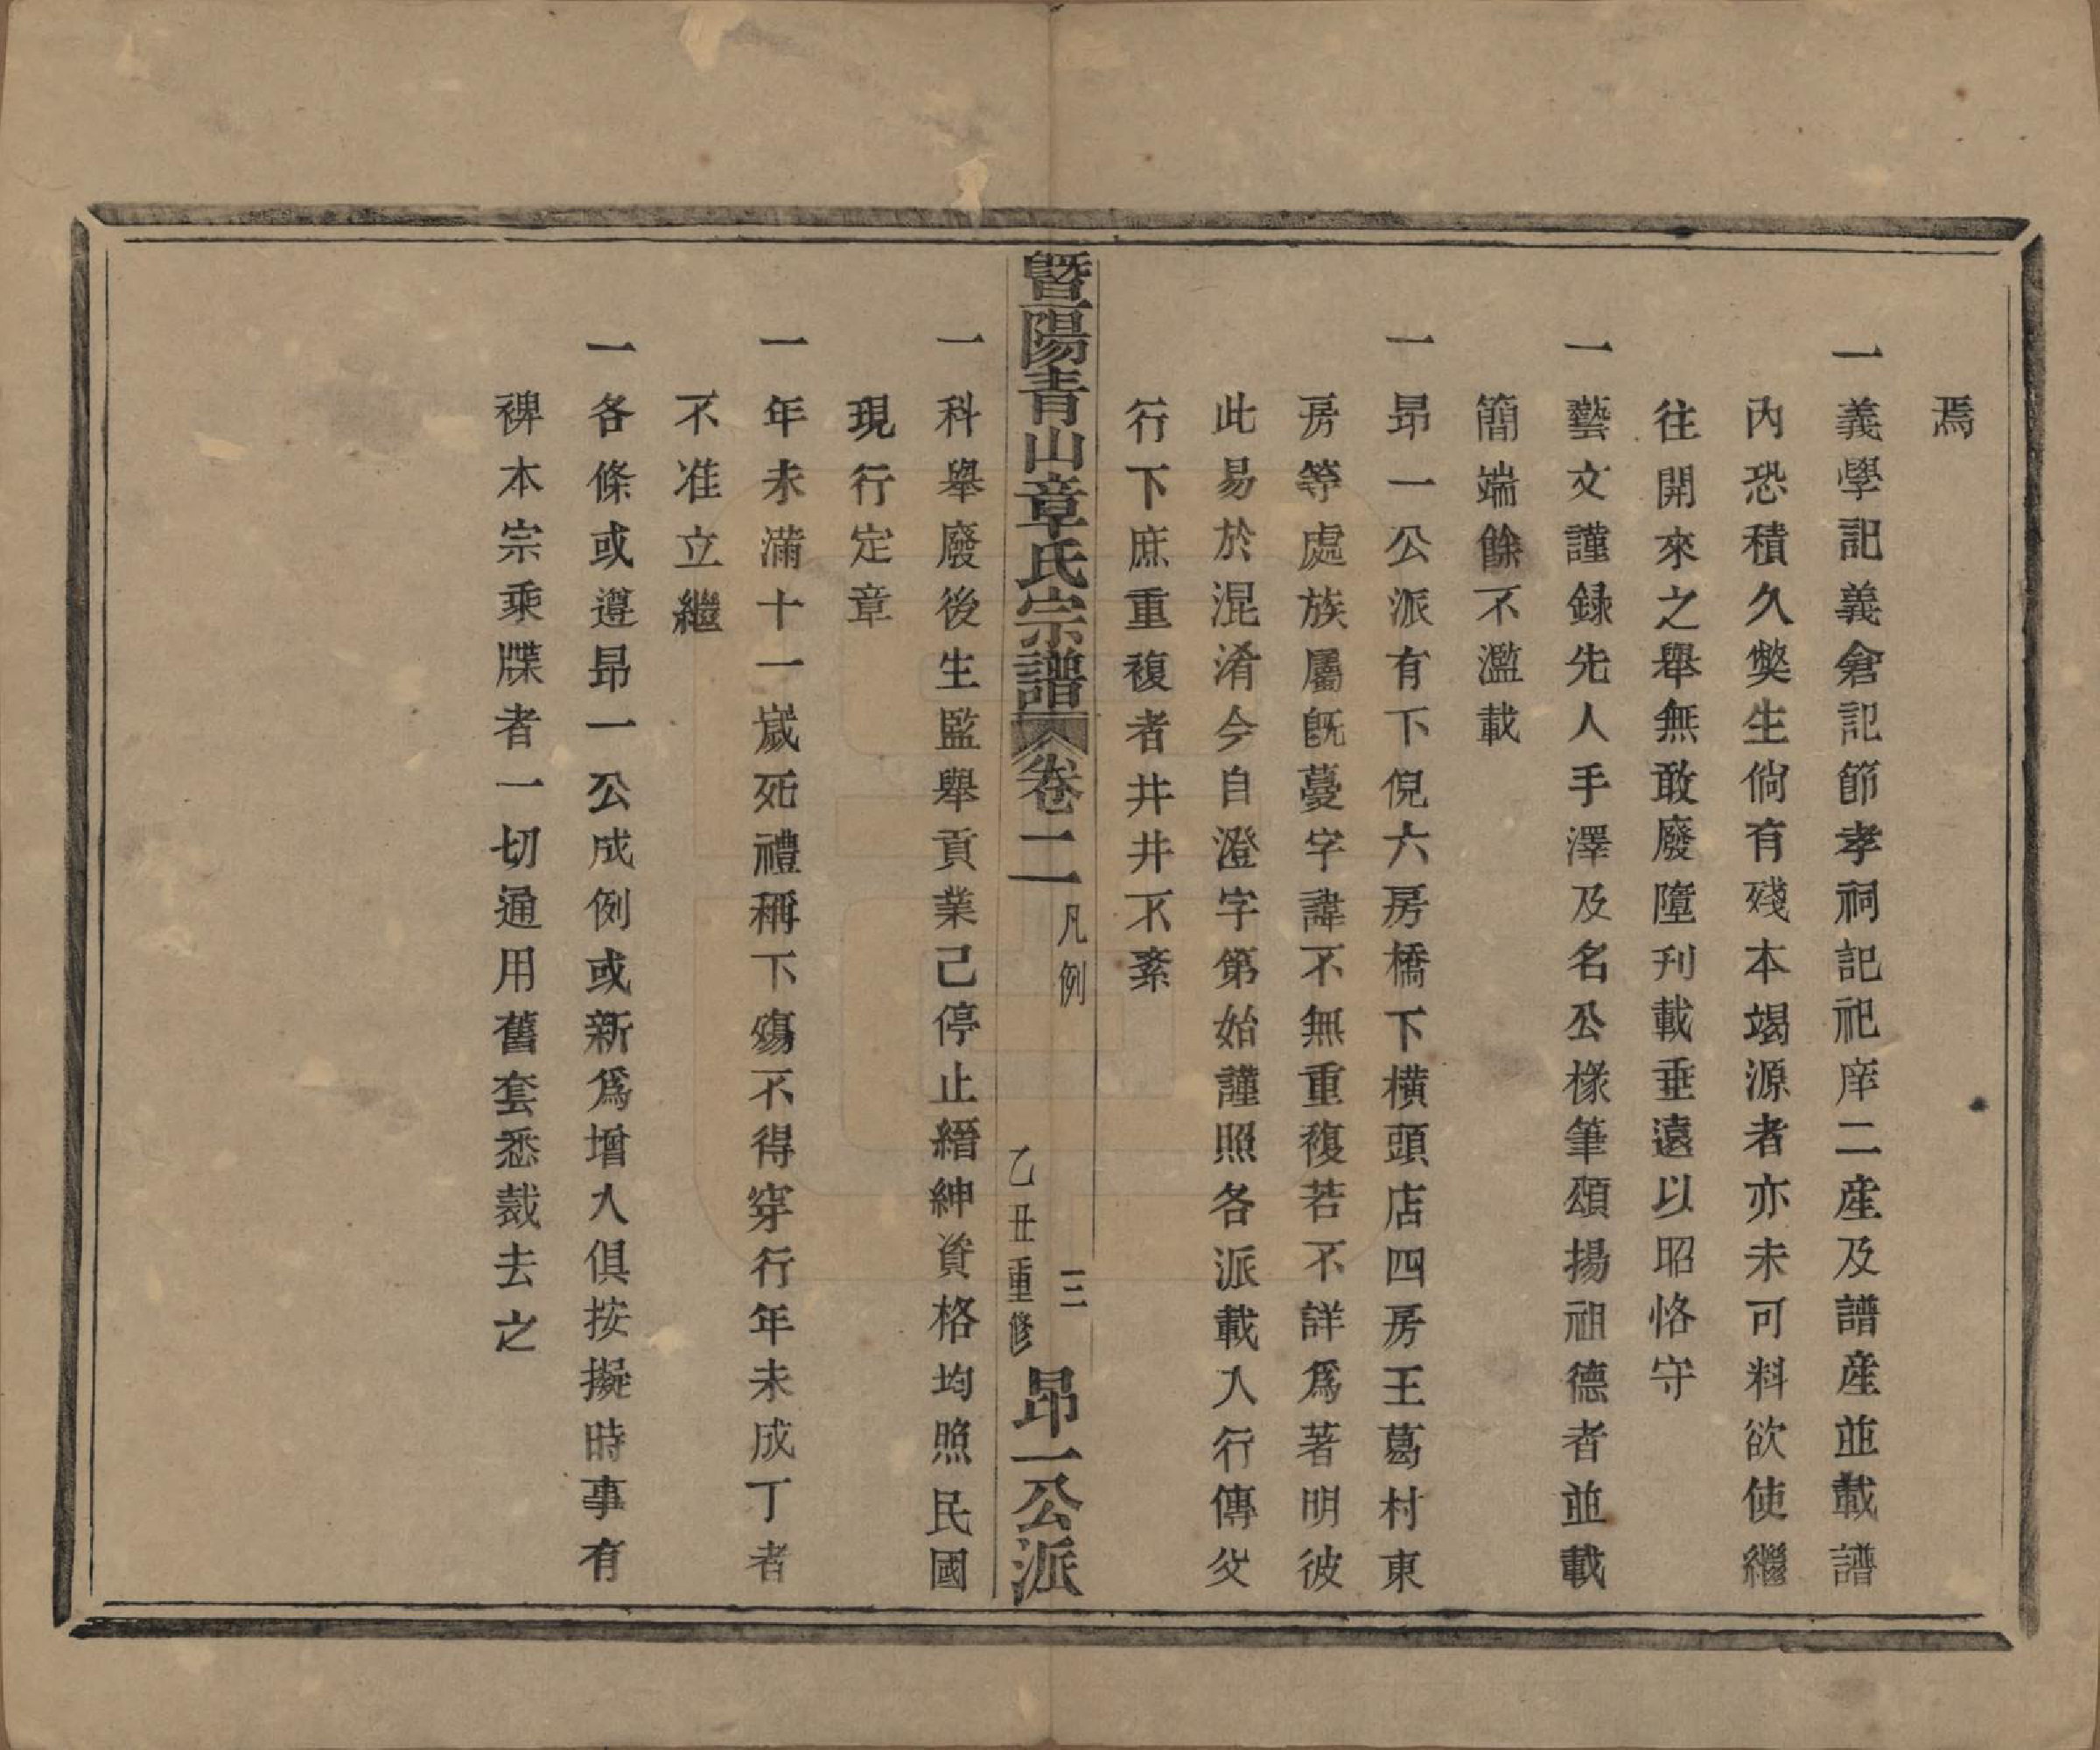 焉
一義學記義倉記節孝祠記祀庠二產及譜產並載譜
內恐積久獘生倘有殘本竭源者亦未可料欲使繼
往開來之舉無敢廢墮刊載垂遠以昭恪守
一藝文謹録先人手澤及名公椽筆頌揚祖德者並載
簡端餘不濫載
一昻一公派有下倪六房橋下橫頭店四房王葛村東
房等處族屬旣蔓字諱不無重複若不詳爲著明彼
此易於混淆今自澄字第始謹照各派載入行傳父
行下庶重複者井井不紊
暨陽青山章氏宗譜 卷二 凡例 三 乙丑重修 昻一公派
一科舉廢後生監舉貢業己停止縉紳資格均照民國
現行定章
一年未滿十一歲死禮稱下殤不得穿行年未成丁者
不准立繼
一各條或遵昻一公成例或新爲增入俱按擬時事有
裨本宗乘牒者一切通用舊套悉裁去之